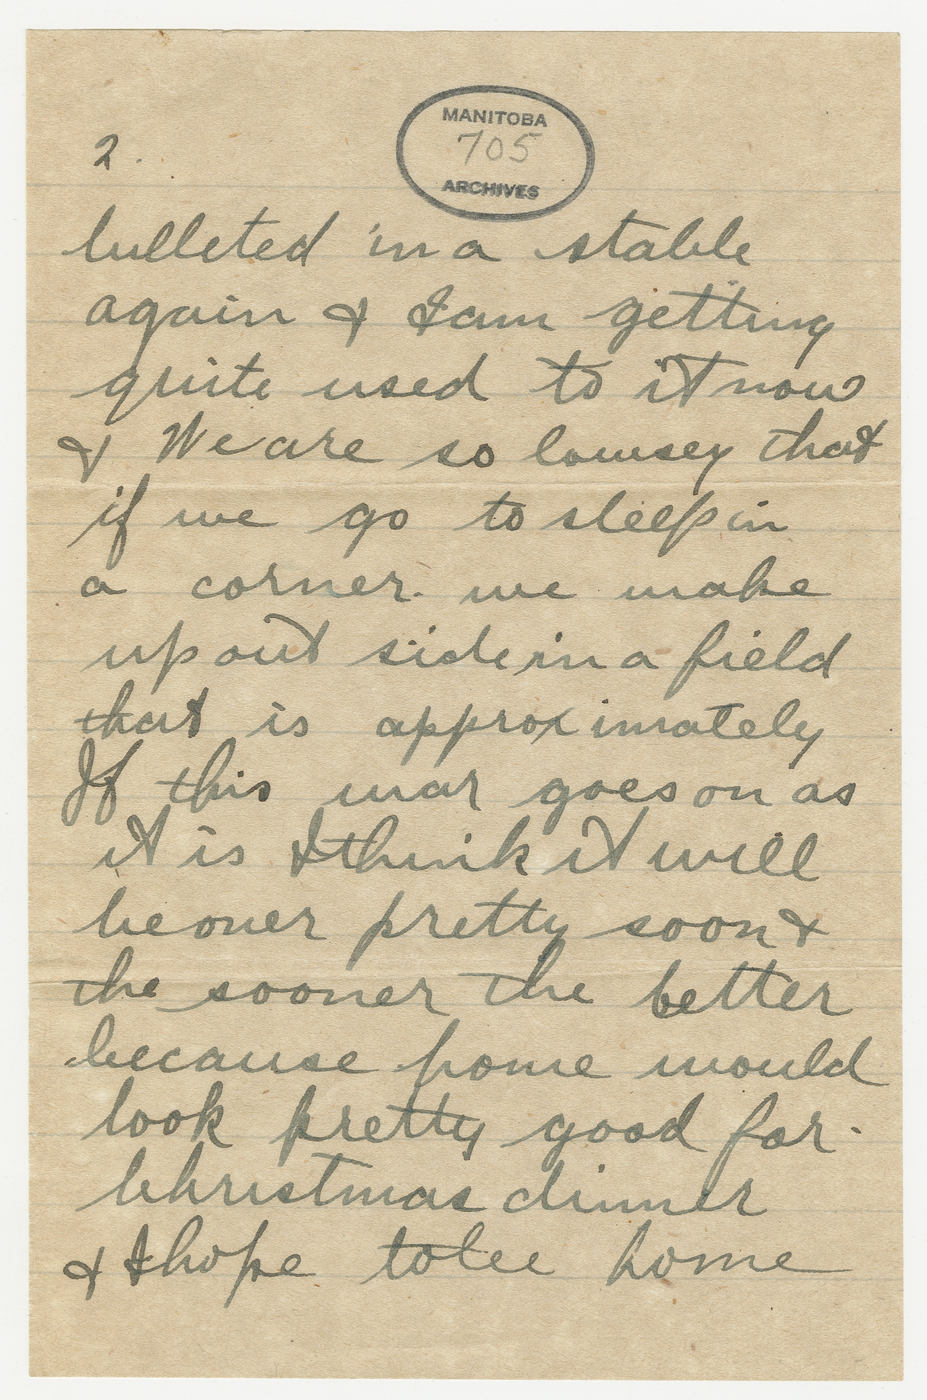 MANITOBA
705
ARCHIVES
2.
bulleted in a stable
again & I am getting
quite used to it now
& We are so lowsey that
if we go to sleep in
a corner. we make
up out side in a field
that is approximately
If this war goes on as
it is I think it will
be over pretty soon &
the sooner the better
because home would
look pretty good for.
Christmas dinner
& I hope to be home